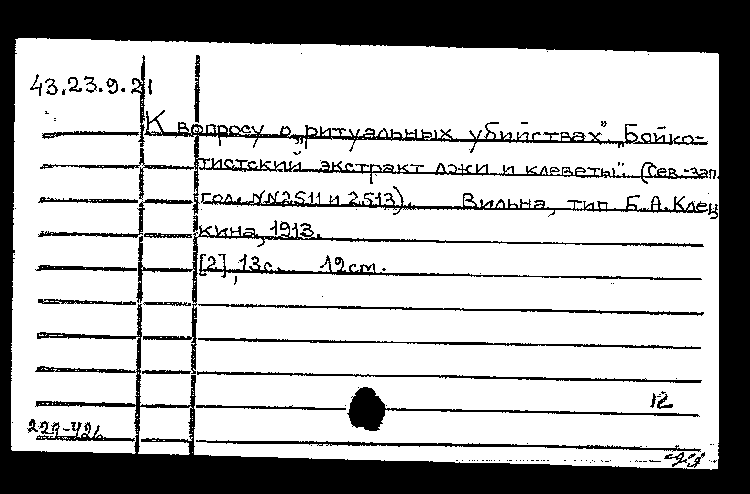 43.23.9.21
К вопросу о „ритуальных убийствах" „Бойко-
тистский экстракт лжи и клеветы". (Сев.-зап.
гол. NN2511 и 2513). Вильна, тип. Б.А.Клец
кина, 1913.
[2], 13с. 19см.
12